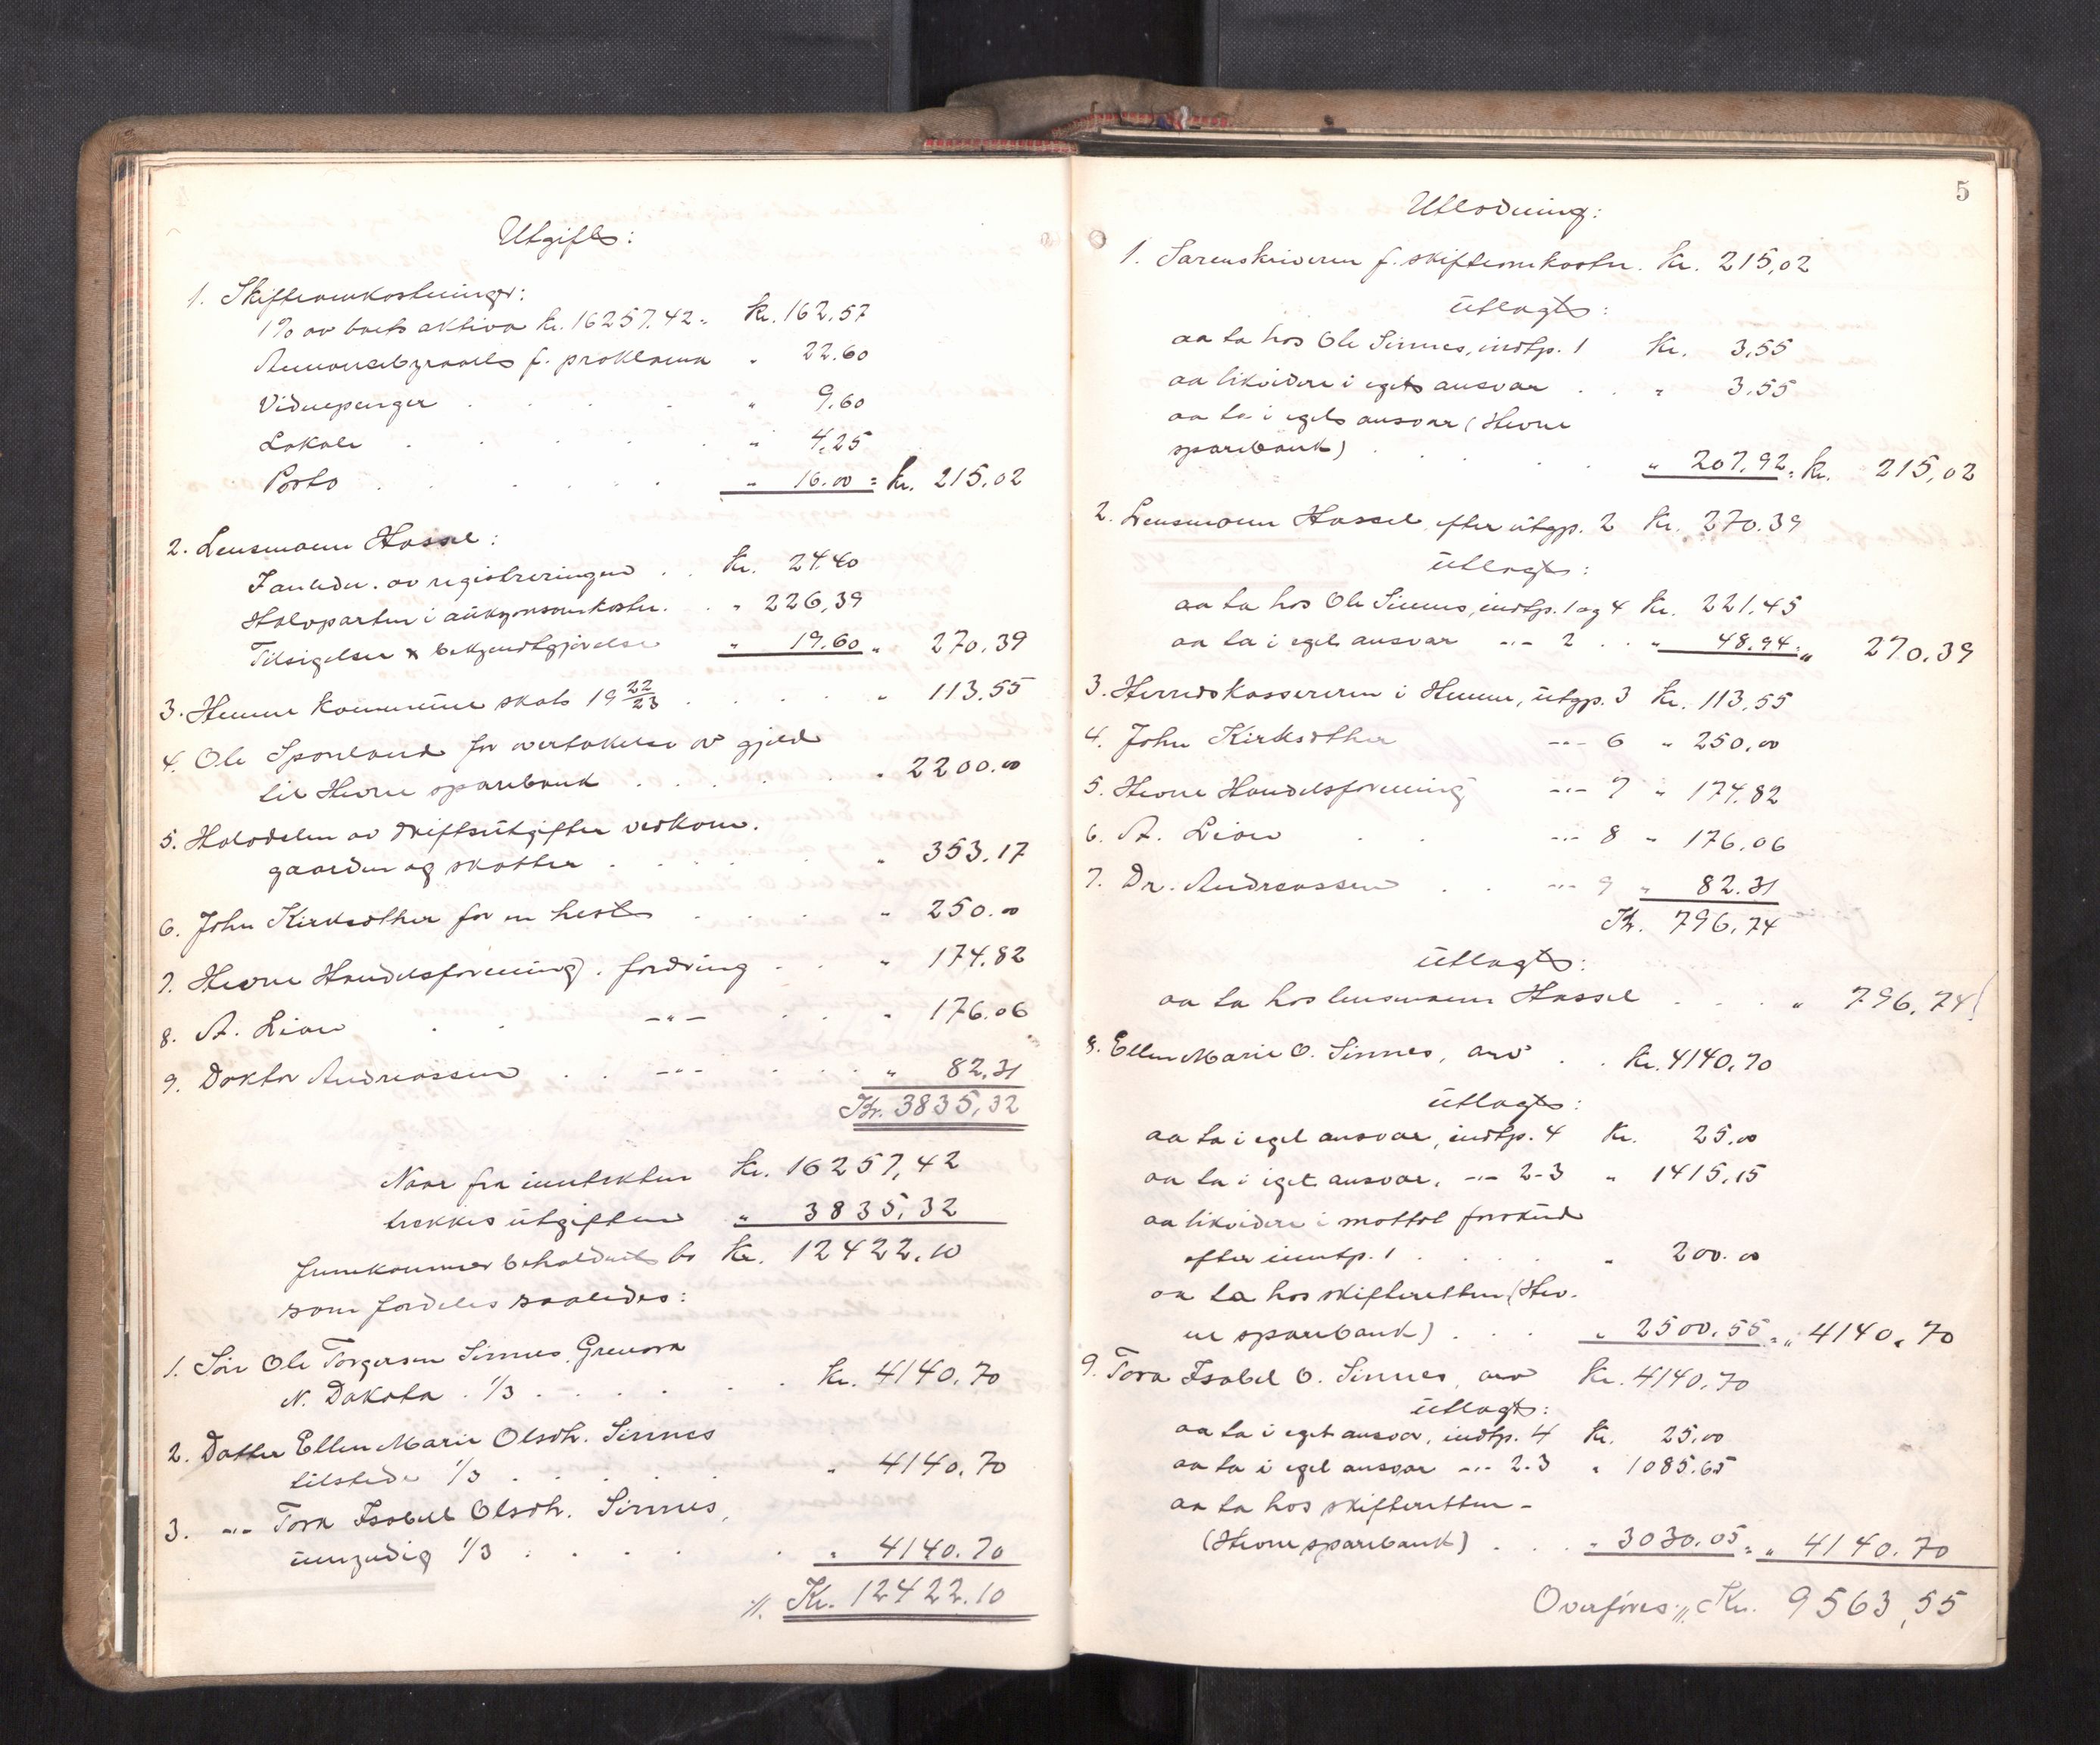 Utgift:
1. Skifteomkostninger:
1% av boets aktiva kr. 16257.42 = kr. 162.57
Annonsebyraaets f. proklama " 22.60
Vidnepenger " 9.60
Lokale " 4.25
Porto " 16.00 = kr. 215.02
2. Lensmann Hassel:
Foranledn. av registreringen kr. 24.40
Halvparten i auksjonsomkostn. " 226,39
Tilsigelser & bekjendtgjørelse " 19.60 " 270.39
3. Hemne kommune skat 19 22/23 " 113.55
4. Ole Sponland for overtakelse av gjeld
til Hevne sparebank " 2200.00
5. Halvdelen av driftsutgifter vedkom.
gaarden og skatter " 353.17
6. John Kirksæther for en hest " 250.00
7. Hevne Handelsforening. fordring " 174.82
8. A. Lian -"- " 176.06
9. Doktor Andreassen -"- " 82,31
Kr. 3835,32
Naar fra inntekten kr. 16257,42
trækkes utgiften " 3835,32
fremkommer beholdnet bo kr. 12422.10
som fordeles saaledes:
1. Søn Ole Torgersen Sinnes, Grenora
N. Dakota. 1/3 kr. 4140.70
2. Datter Ellen Marie Olsdtr. Sinnes
tilstede 1/3 " 4140.70
3. -"- Tora Isabel Olsdtr. Sinnes,
umyndig 1/3 " 4140.70
Kr. 12422.10
5
Utlodning:
1. Sorenskriveren f. skifteomkostn. kr. 215,02
utlagt:
aa ta hos Ole Sinnes, indtp. 1 kr. 3,55
aa likvidere i eget ansvar " 3,55
aa ta i eget ansvar (Hevne
sparebank) " 207,92 = kr. 215,02
2. Lensmann Hassel, efter utgp. 2 kr. 270.39
utlagt:
aa ta hos Ole Sinnes, indtp. 1 og 4 kr. 221.45
aa ta i eget ansvar -"- 2 " 48.94 = " 270.39
3. Herredskassereren i Hemne, utgp. 3 kr. 113,55
4. John Kirksæther -"- 6 " 250,00
5. Hevne Handelsforening -"- 7 " 174.82
6. A. Lian -"- 8 " 176.06
7. Dr. Andreassen -"- 9 " 82.31
Kr. 796,74
utlagt:
aa ta hos lensmann Hassel " 796,74
8. Ellen Marie O. Sinnes, arv kr. 4140,70
utlagt:
aa ta i eget ansvar, indtp. 4 kr. 25.00
aa ta i eget ansvar, -"- 2-3 " 1415,15
aa likvidere i mottat forskud
efter inntp. 1 " 200.00
aa ta hos skifteretten (Hev-
ne sparebank) " 2500.55 = " 4140.70
9. Tora Isabel O. Sinnes, arv kr. 4140,70
utlagt:
aa ta i eget ansvar, indtp. 4 kr. 25,00
aa ta i eget ansvar -"- 2-3 " 1085.65
aa ta hos skifteretten -
(Hevne sparebank) " 3030.05 = " 4140.70
Overføres Kr. 9563,55